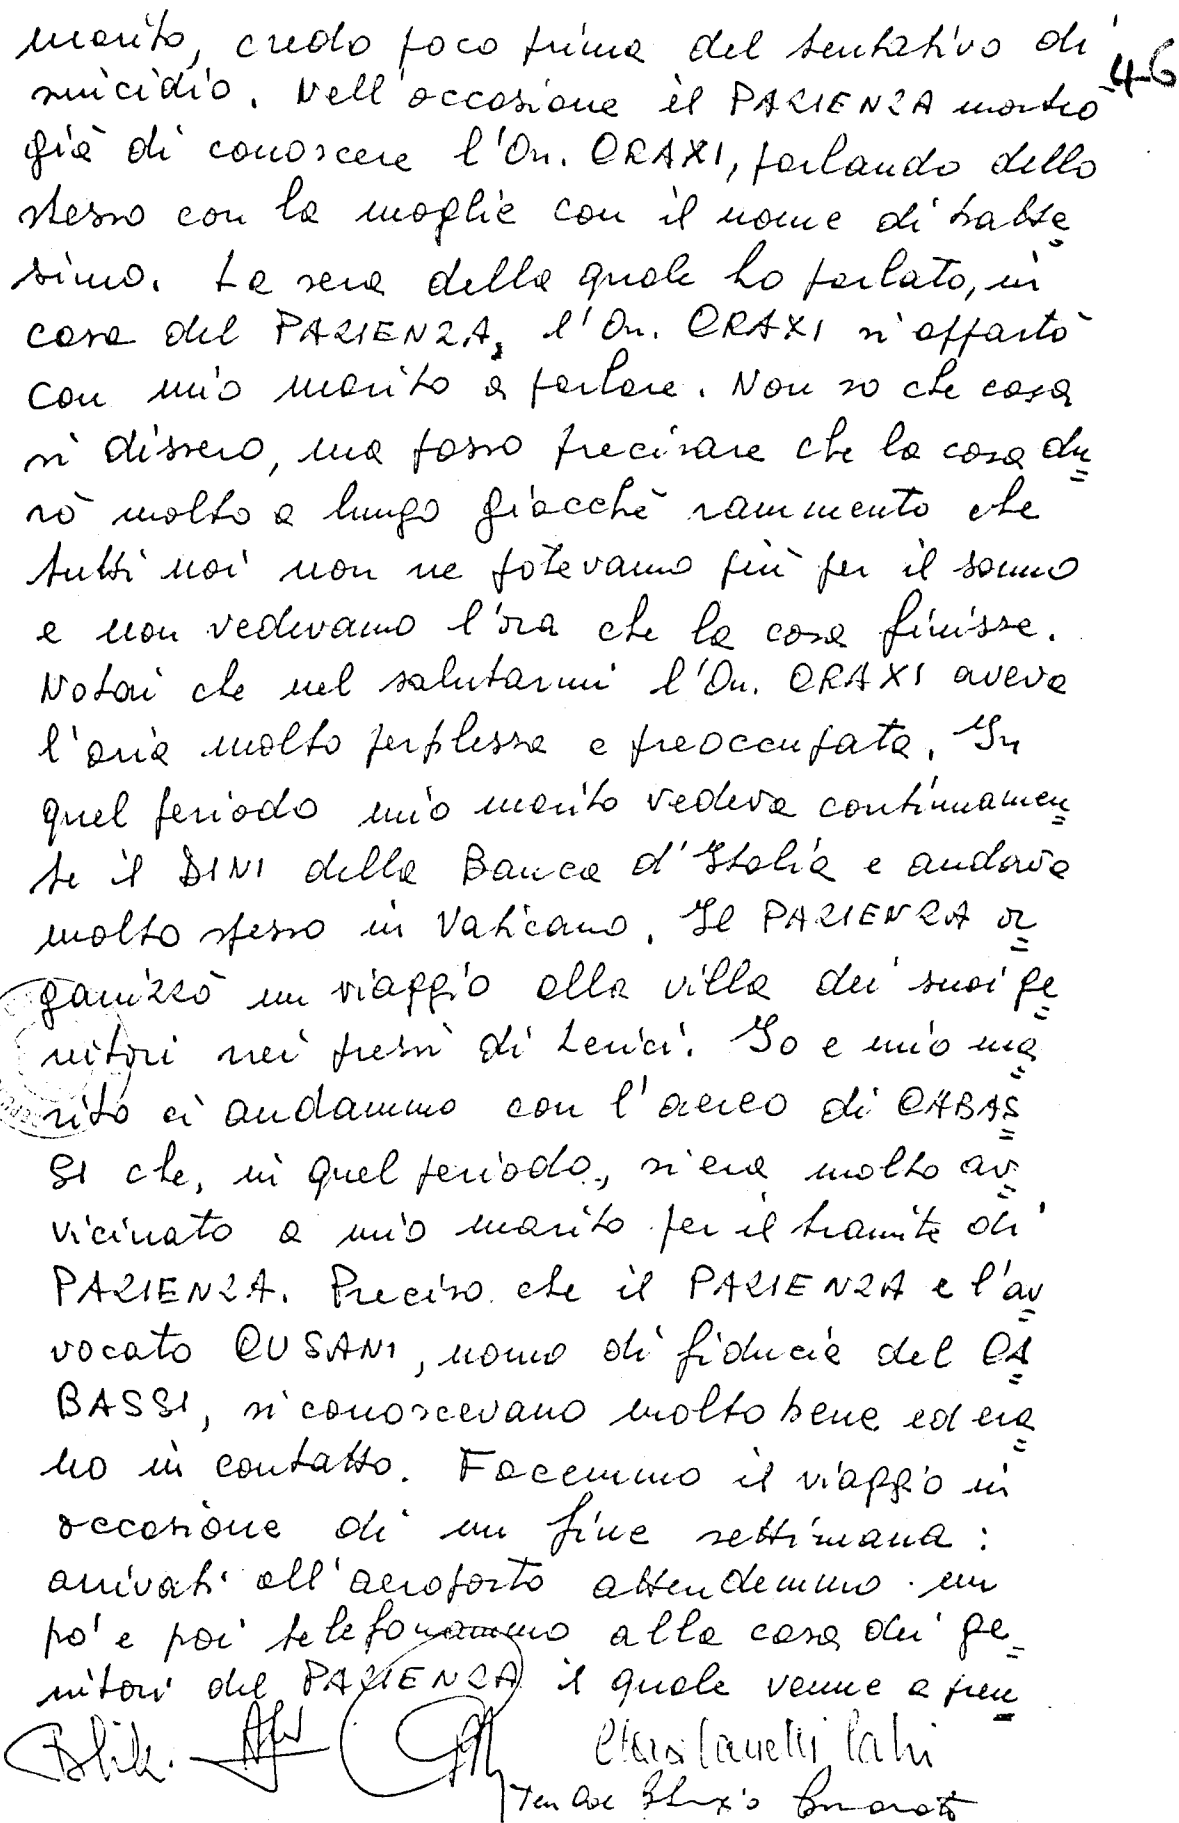 marito, credo poco prima del tentativo di
46
suicidio. Nell'occasione il PAZIENZA mostrò
già di conoscere l'On. CRAXI, parlando dello
stesso con la moglie con il nome di batte
simo. La sera della quale ho parlato, in
casa del PAZIENZA, l'On. CRAXI si appartò
con mio marito a parlare. Non so che cosa
si dissero, ma posso precisare che la cosa du
rò molto a lungo giacchè rammento che
tutti noi non ne potevamo più per il sonno
e non vedevamo l'ora che la cosa finisse.
Notai che nel salutarmi l'On. CRAXI aveva
l'aria molto perplessa e preoccupata. In
quel periodo mio marito vedeva continuamen
te il DINI della Banca d'Italia e andava
molto spesso in Vaticano. Il PAZIENZA or
ganizzò un viaggio alla villa dei suoi ge
nitori nei pressi di Lerici. Io e mio ma
rito ci andammo con l'aereo di CABAS
SI che, in quel periodo, si era molto av
vicinato a mio marito per il tramite di
PAZIENZA. Preciso che il PAZIENZA e l'av
vocato CUSANI, uomo di fiducia del CA
BASSI, si conoscevano molto bene ed era
no in contatto. Facemmo il viaggio in
occasione di un fine settimana:
arrivati all'aeroporto attendemmo un
pò e poi telefonammo alla casa dei ge
nitori del PAZIENZA il quale venne a pren
Clara Canetti Calvi